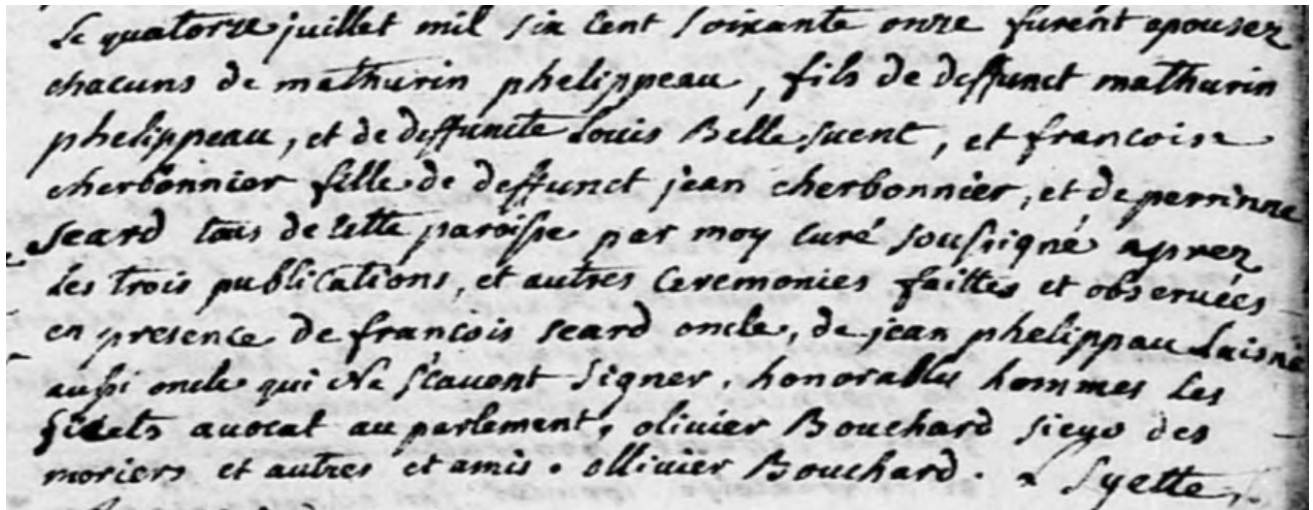 Le quatorze juillet mil six cent soixante onze furent epousez
chacuns de mathurin phelippeau, fils de deffunct mathurin
phelippeau, et de deffuncte Louis Belle suent, et francoise
cherbonnier fille de deffunct jean cherbonnier, et de perrinne
seard tous de cette paroisse par moy curé soussigné aprez
les trois publications, et autres ceremonies faittes et observées
en presence de francois seard oncle, de jean phelippau laisné
aussi oncle qui ne scavent signer, honorables hommes les
avocat au parlement, olivier Bouchard sieur des
moriers et autres et amis. ollivier Bouchard. Syette